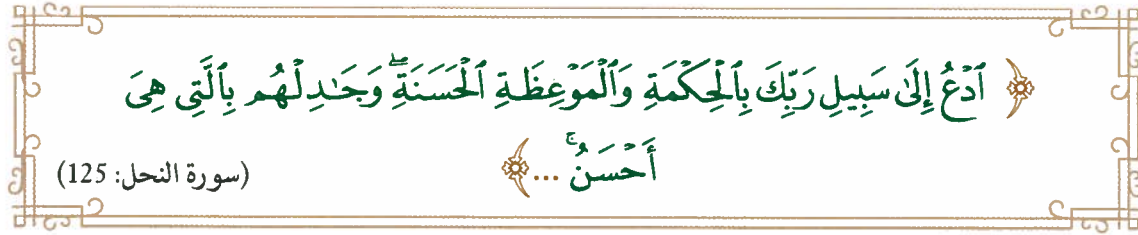 ﴿ ٱدۡعُ إِلَىٰ سَبِيلِ رَبِّكَ بِٱلۡحِكۡمَةِ وَٱلۡمَوۡعِظَةِ ٱلۡحَسَنَةِۖ وَجَٰدِلۡهُم بِٱلَّتِى هِىَ
أَحۡسَنُۚ ... ﴾ (سورة النحل: 125)